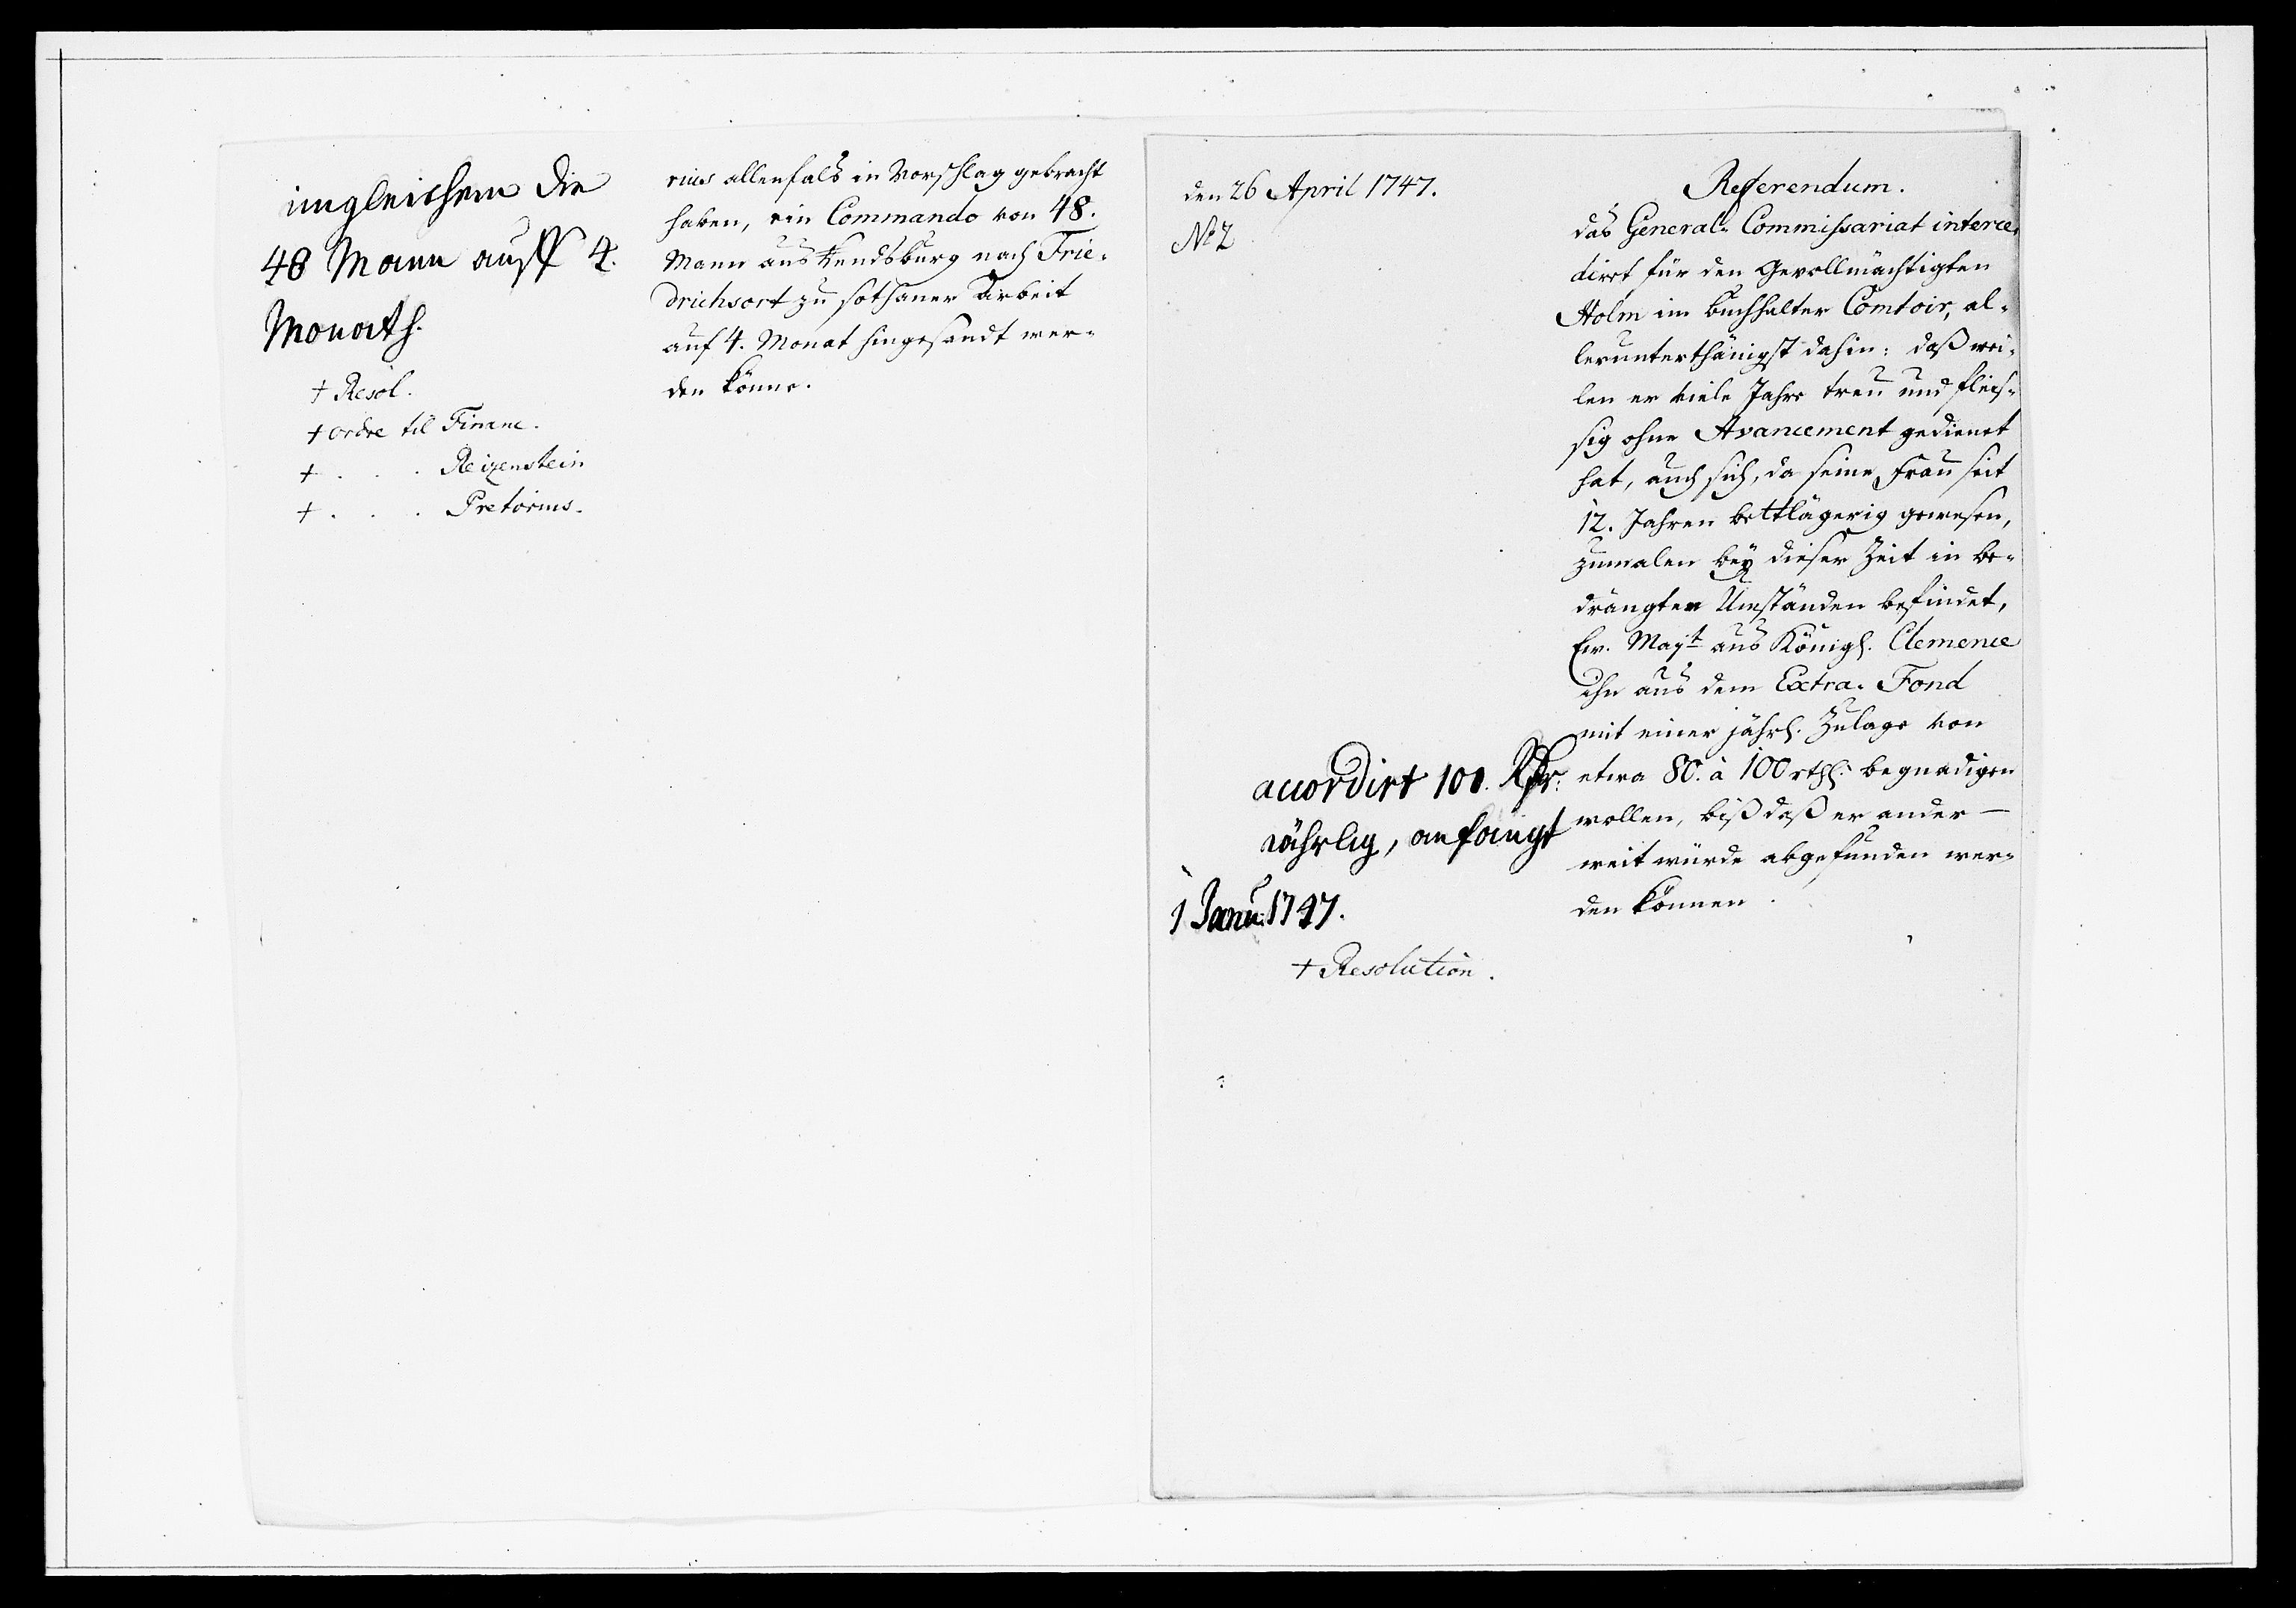 imgleichem die
48 Mann auff 4.
Monath.
+ Resol.
+ ordre til Financ.
+ . . . Reizenstein
+ . . . Pretorius.
rius allenfals in Vorschlag gebracht
haben, ein Commando von 48.
Mann aus Rendsburg nach Frie-
drichsort zu sothaner Arbeit
auf 4. Monat hingesandt wer-
den könne.
den 26 April 1747.
No 2
Referendum.
das General-Commissariat interce-
diret für den Gevollmächtigten
Holm im Buchhalter Comtoir, al-
lerunterthänigst dahin: daß wei-
len er viele Jahre treu und fleis-
sig ohne Avancement gedienet
hat, auch sich, da seine Frau seit
12. Jahren bettlägerig gewesen,
zumalen bey dieser Zeit in be-
drängten Umständen befindet,
Ew. Mayt aus Königl. Clemence
ihn aus dem Extra-Fond
mit einer jährl. Zulage von
etwa 80. à 100 rthl. begnadigen
wollen, biß daß er ander-
weit würde abgefunden wer-
den können.
accordirt 100. Rdr.
jährlig, anfangt
1 Janu. 1747.
+ Resolution.